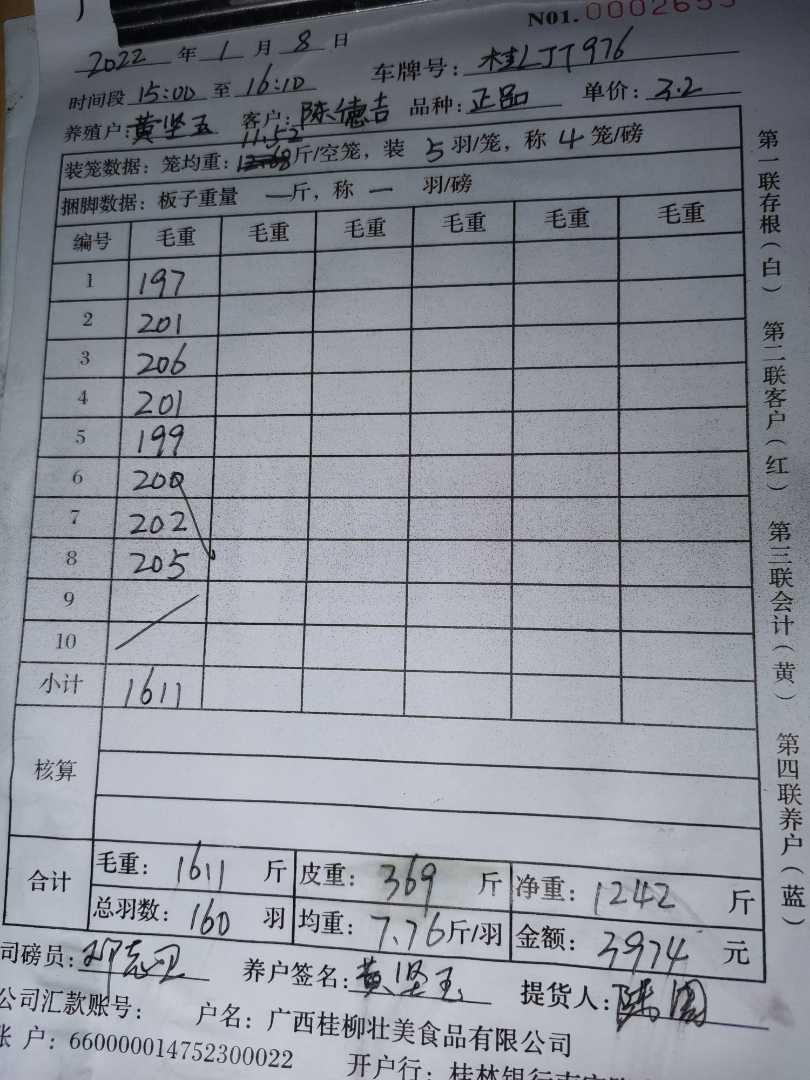 NO1.
2022 年 1 月 8 日
时间段 15:00 至 16:10 车牌号: 桂LJT976
养殖户: 黄坚玉 客户: 陈德吉 品种: 正品 单价: 3.2
11.52
装笼数据: 笼均重: 斤/空笼, 装 5 羽/笼, 称 4 笼/磅
捆脚数据: 板子重量 — 斤, 称 — 羽/磅
编号 毛重 毛重 毛重 毛重 毛重 毛重
1 197
2 201
3 206
4 201
5 199
6 200
7 202
8 205
9
10
小计 1611
核算
合计 毛重: 1611 斤 皮重: 369 斤 净重: 1242 斤
总羽数: 160 羽 均重: 7.76 斤/羽 金额: 3974 元
司磅员: 养户签名: 黄坚玉 提货人:
公司汇款账号: 户名: 广西桂柳壮美食品有限公司
账 户: 660000014752300022 开户行:
第一联存根(白) 第二联客户(红) 第三联会计(黄) 第四联养户(蓝)